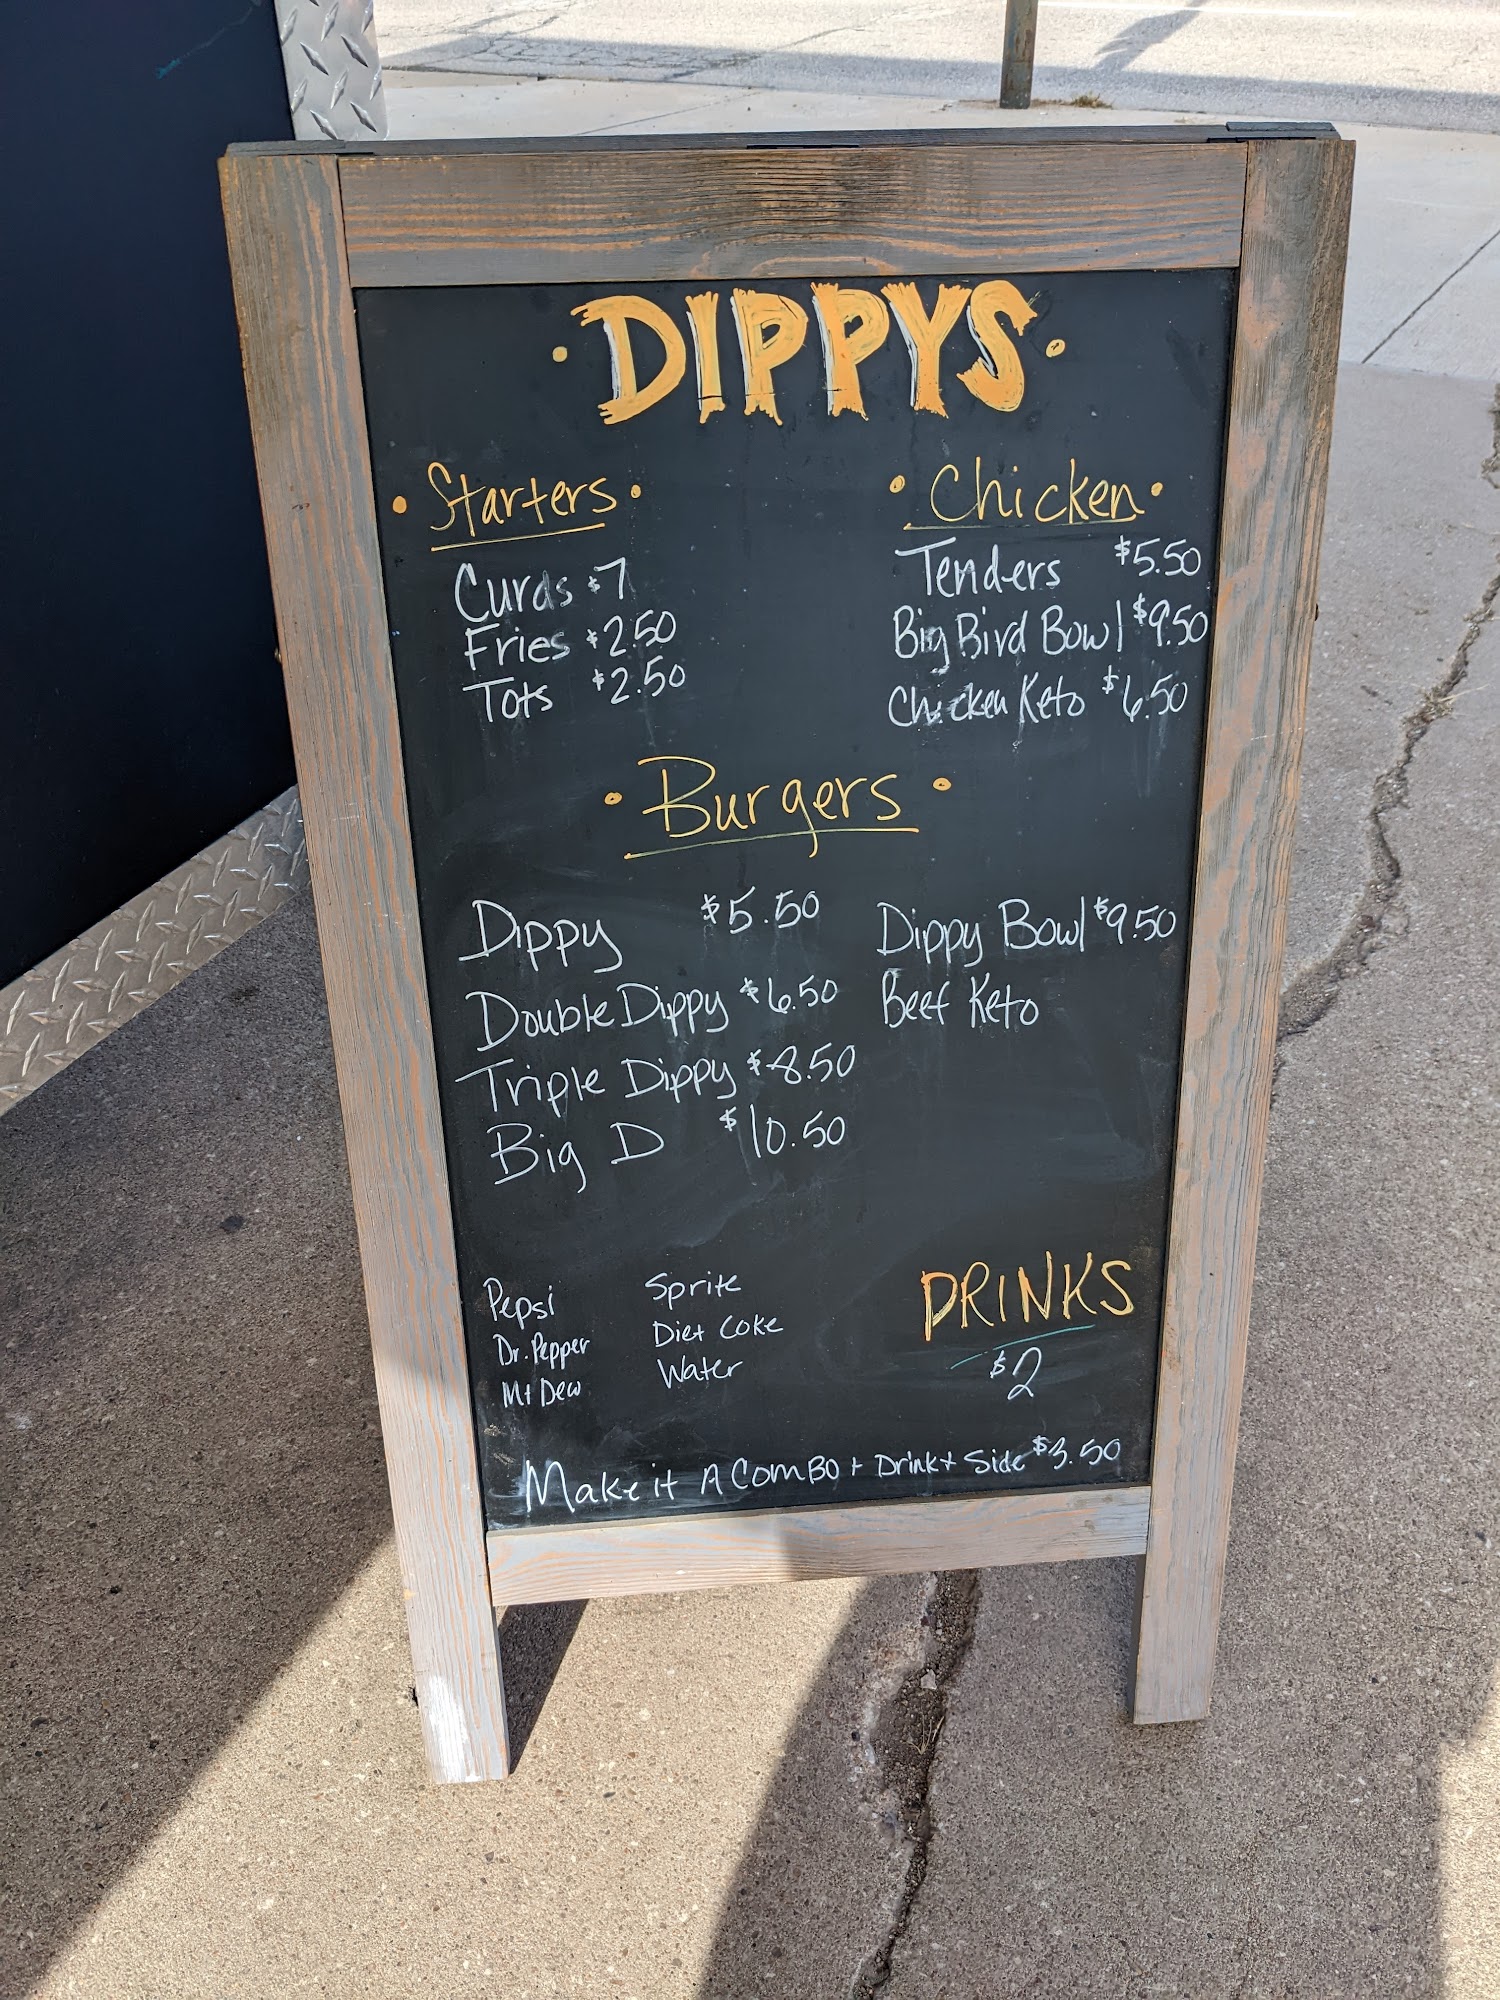 · DIPPYS ·
· Starters ·
Curds $7
Fries $2.50
Tots $2.50
· Chicken ·
Tenders $5.50
Big Bird Bowl $9.50
Chicken Keto $6.50
· Burgers ·
Dippy $5.50
Double Dippy $6.50
Triple Dippy $8.50
Big D $10.50
Dippy Bowl $9.50
Beef Keto
Pepsi
Dr. Pepper
Mt Dew
Sprite
Diet Coke
Water
DRINKS
$2
Make it A COMBO + Drink + Side $3.50